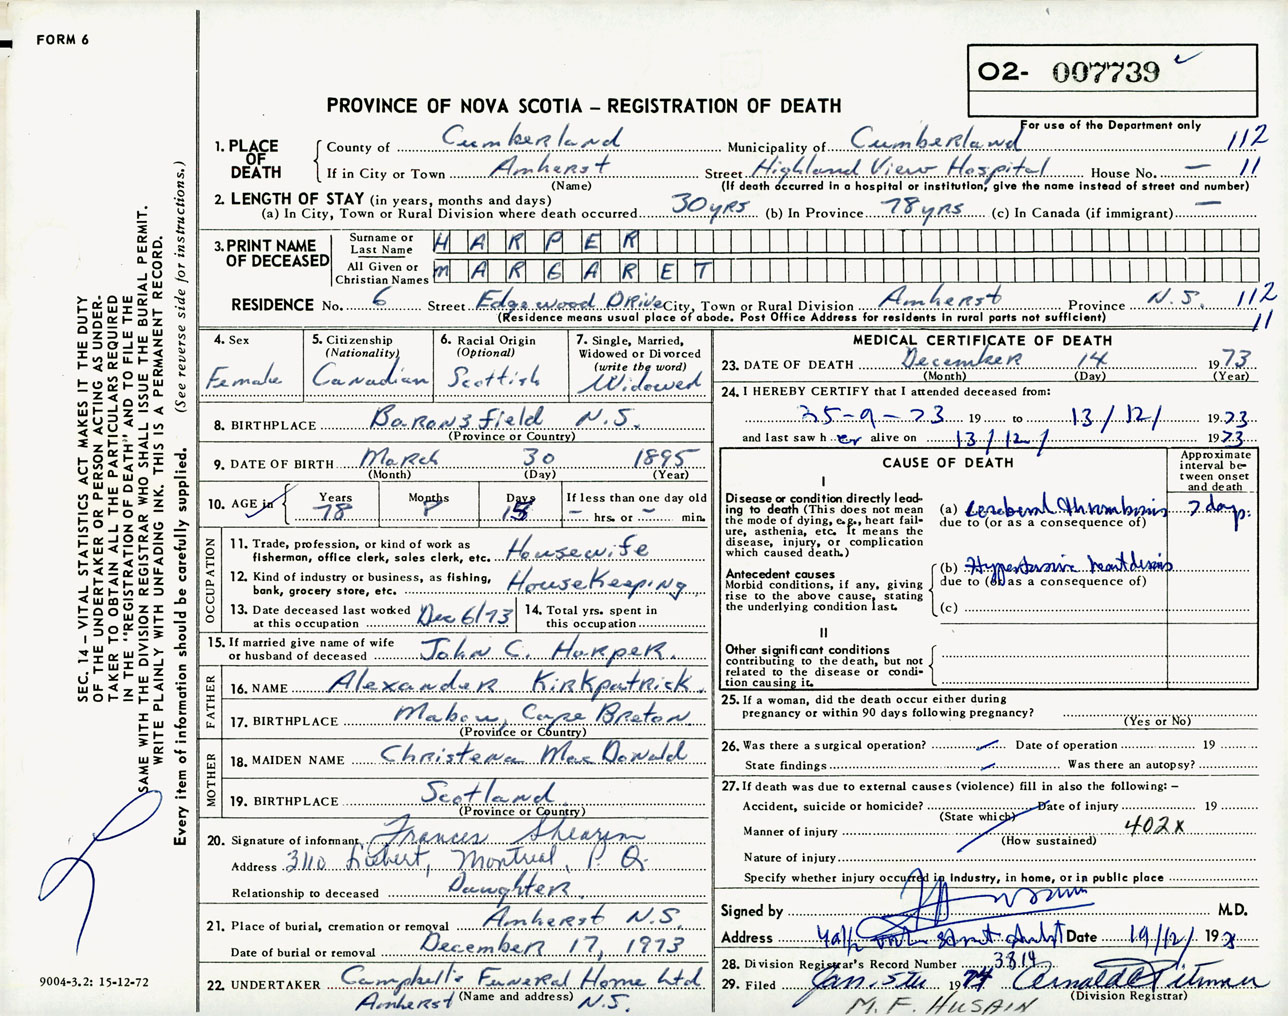 FORM 6
O2- 007739
PROVINCE OF NOVA SCOTIA – REGISTRATION OF DEATH
For use of the Department only
1. PLACE OF DEATH
County of Cumberland Municipality of Cumberland 112
If in City or Town Amherst Street Highland View Hospital House No. — 11
(Name) (If death occurred in a hospital or institution, give the name instead of street and number)
2. LENGTH OF STAY (in years, months and days)
(a) In City, Town or Rural Division where death occurred 30 yrs (b) In Province 78 yrs (c) In Canada (if immigrant) —
3. PRINT NAME OF DECEASED
Surname or Last Name HARPER
All Given or Christian Names MARGARET
RESIDENCE No. 6 Street Edgewood Drive City, Town or Rural Division Amherst Province N.S. 112
(Residence means usual place of abode. Post Office Address for residents in rural parts not sufficient) 11
4. Sex
Female
5. Citizenship
(Nationality)
Canadian
6. Racial Origin
(Optional)
Scottish
7. Single, Married,
Widowed or Divorced
(write the word)
Widowed
8. BIRTHPLACE Baronsfield N.S.
(Province or Country)
9. DATE OF BIRTH March 30 1895
(Month) (Day) (Year)
10. AGE in
Years Months Days If less than one day old
78 8 15 – hrs. or – min.
OCCUPATION
11. Trade, profession, or kind of work as
fisherman, office clerk, sales clerk, etc. Housewife
12. Kind of industry or business, as fishing,
bank, grocery store, etc. HouseKeeping
13. Date deceased last worked
at this occupation Dec 6/73
14. Total yrs. spent in
this occupation
15. If married give name of wife
or husband of deceased John C. Harper.
FATHER
16. NAME Alexander Kirkpatrick.
17. BIRTHPLACE Mabou, Cape Breton
(Province or Country)
MOTHER
18. MAIDEN NAME Christena MacDonald
19. BIRTHPLACE Scotland
(Province or Country)
20. Signature of informant Frances
Address 3110 Montreal, P. Q.
Relationship to deceased Daughter
21. Place of burial, cremation or removal Amherst N.S.
Date of burial or removal December 17, 1973
22. UNDERTAKER Campbell's Funeral Home Ltd
(Name and address)
Amherst N.S.
MEDICAL CERTIFICATE OF DEATH
23. DATE OF DEATH December 14 1973
(Month) (Day) (Year)
24. I HEREBY CERTIFY that I attended deceased from:
25-9-73 19 to 13/12/ 1973
and last saw her alive on 13/12/ 1973
CAUSE OF DEATH
Approximate interval between onset and death
I
Disease or condition directly lead-
ing to death (This does not mean
the mode of dying, e.g., heart fail-
ure, asthenia, etc. It means the
disease, injury, or complication
which caused death.)
(a) Cerebral thrombosis 7 days.
due to (or as a consequence of)
Antecedent causes
Morbid conditions, if any, giving
rise to the above cause, stating
the underlying condition last.
(b) Hypertensive heart disease
due to (or as a consequence of)
(c)
II
Other significant conditions
contributing to the death, but not
related to the disease or condi-
tion causing it.
25. If a woman, did the death occur either during
pregnancy or within 90 days following pregnancy?
(Yes or No)
26. Was there a surgical operation? Date of operation 19
State findings Was there an autopsy?
27. If death was due to external causes (violence) fill in also the following: –
Accident, suicide or homicide? Date of injury 19
(State which)
Manner of injury 402X
(How sustained)
Nature of injury
Specify whether injury occurred in Industry, in home, or in public place
Signed by M.D.
Address Date 19/12/ 19
28. Division Registrar's Record Number 3314
29. Filed Jan. 5th 1974
(Division Registrar)
M. F. HUSAIN
SEC. 14 – VITAL STATISTICS ACT MAKES IT THE DUTY
OF THE UNDERTAKER OR PERSON ACTING AS UNDER-
TAKER TO OBTAIN ALL THE PARTICULARS REQUIRED
IN THE "REGISTRATION OF DEATH" AND TO FILE THE
SAME WITH THE DIVISION REGISTRAR WHO SHALL ISSUE THE BURIAL PERMIT.
WRITE PLAINLY WITH UNFADING INK. THIS IS A PERMANENT RECORD.
Every item of information should be carefully supplied. (See reverse side for instructions.)
9004-3.2: 15-12-72